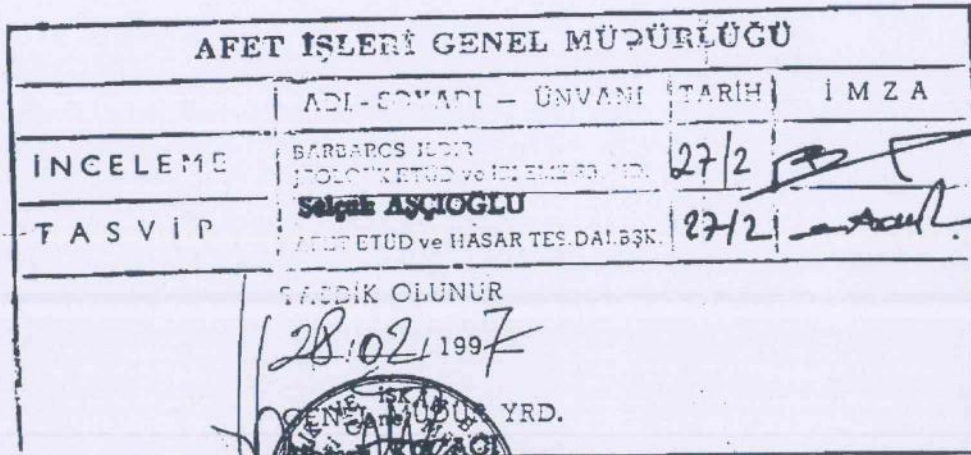 AFET İŞLERİ GENEL MÜDÜRLÜĞÜ
ADI - SOYADI — ÜNVANI TARİH İMZA
İNCELEME BARBAROS 27/2
ETÜD ve
Selçuk AŞÇIOĞLU
TASVİP ETÜD ve HASAR TES.DAİ.BŞK. 27/2
TASDİK OLUNUR
28/02/1997
GENEL MÜDÜR YRD.